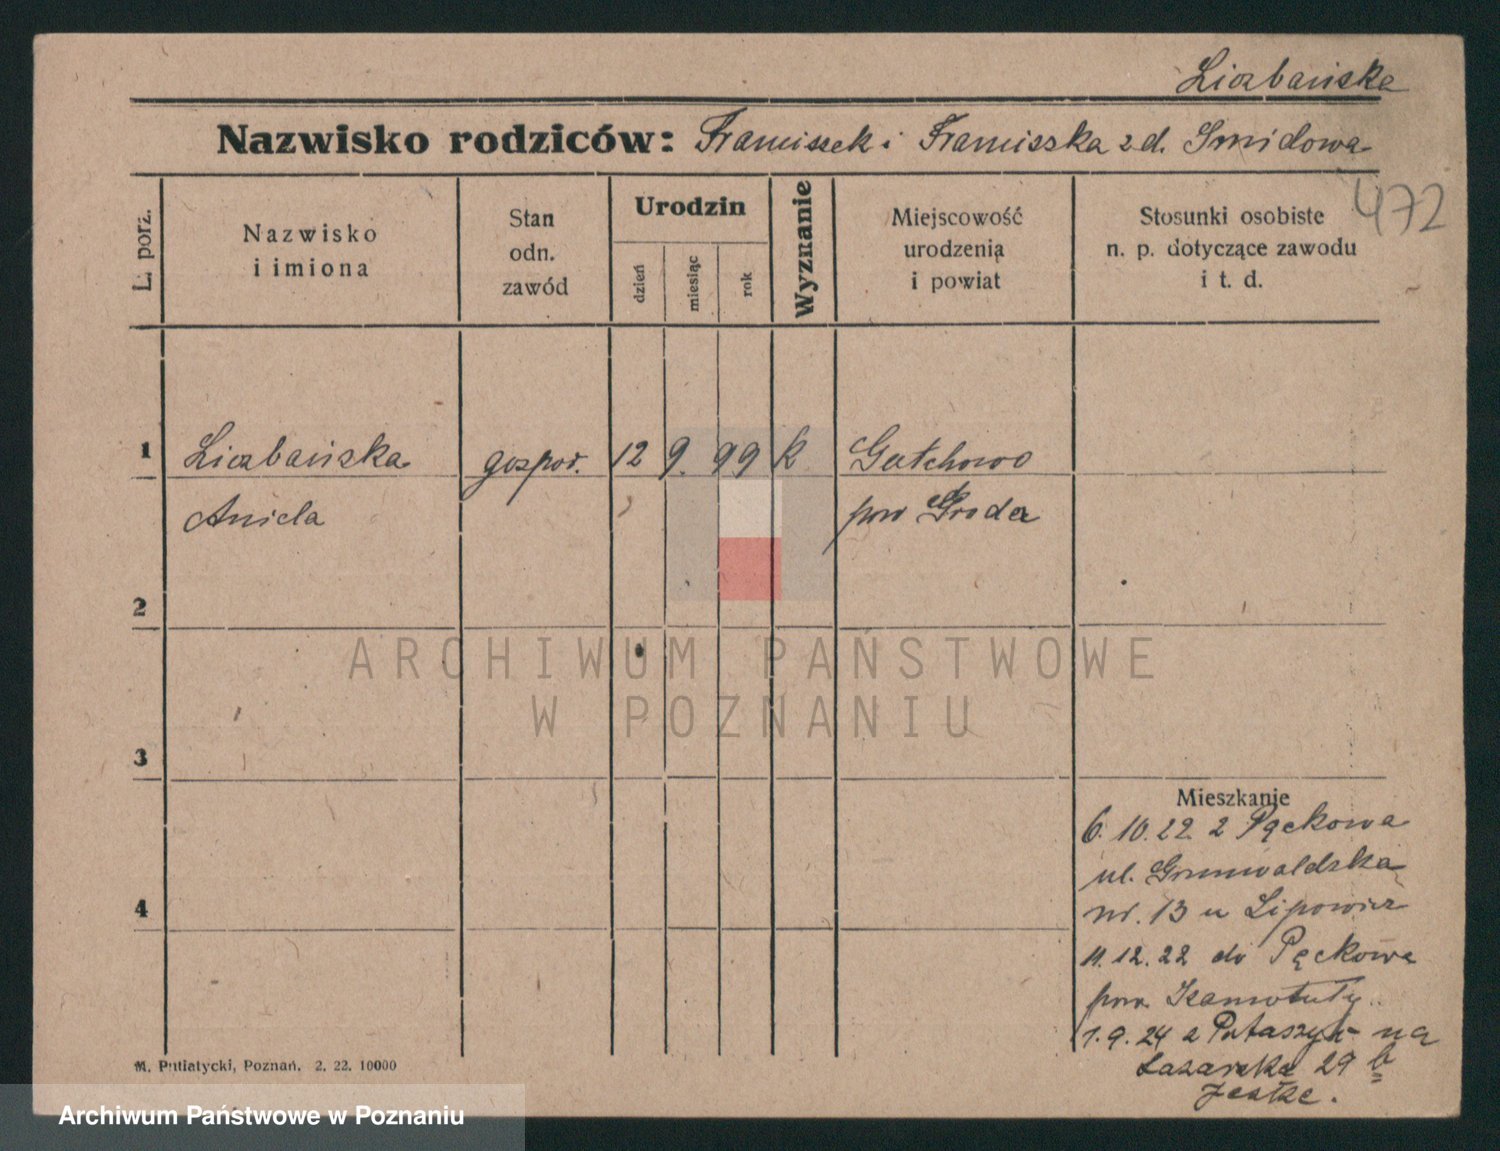 Liczbańska
Nazwisko rodziców: Franciszek i Franciszka z d. Smidowa
472
L. porz.
Nazwisko
i imiona
Stan
odn.
zawód
Urodzin
dzień
miesiąc
rok
Wyznanie
Miejscowość
urodzenia
i powiat
Stosunki osobiste
n. p. dotyczące zawodu
i t. d.
1
Liczbańska gospod. 12 9. 99 k
Aniela pow Środa
2
3
Mieszkanie
6. 10. 22 z Pęckowa
ul. Grunwaldzka
4
nr. 13 u Lipowicz
11. 12. 22 do Pęckowa
pow. Szamotuły
1. 9. 24 z na
Łazarska 29 b
Jeske.
M. Putiatycki, Poznań. 2. 22. 10000
ARCHIWUM PAŃSTWOWE
W POZNANIU
Archiwum Państwowe w Poznaniu